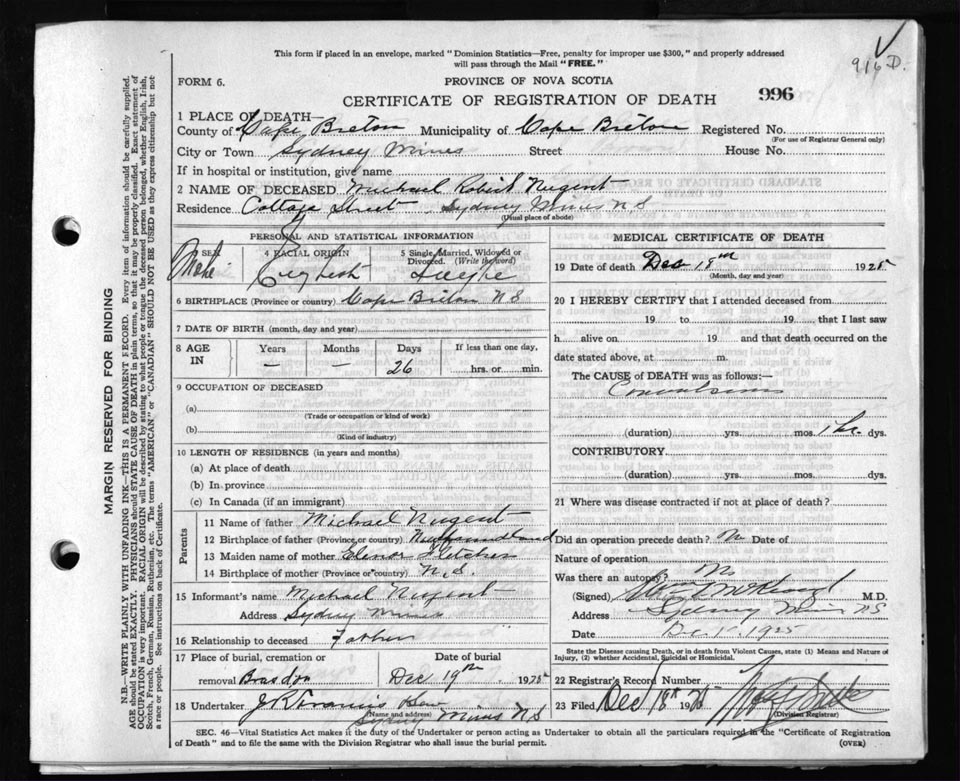 This form if placed in an envelope, marked "Dominion Statistics—Free, penalty for improper use $300," and properly addressed
will pass through the Mail "FREE."
916 D.
FORM 6.
PROVINCE OF NOVA SCOTIA
CERTIFICATE OF REGISTRATION OF DEATH
996
1 PLACE OF DEATH—
County of Cape Breton Municipality of Cape Breton Registered No.
(For use of Registrar General only)
City or Town Sydney Mines Street House No.
If in hospital or institution, give name
2 NAME OF DECEASED Michael Robert Nugent
Residence Cottage Street, Sydney Mines N S
(Usual place of abode)
PERSONAL AND STATISTICAL INFORMATION
3 SEX 4 RACIAL ORIGIN 5 Single, Married, Widowed or
Divorced. (Write the word)
Male English Single
6 BIRTHPLACE (Province or country) Cape Breton N S
7 DATE OF BIRTH (month, day and year)
8 AGE
IN
Years Months Days If less than one day,
— — 26 hrs. or min.
9 OCCUPATION OF DECEASED
(a)
(Trade or occupation or kind of work)
(b)
(Kind of industry)
10 LENGTH OF RESIDENCE (in years and months)
(a) At place of death
(b) In province
(c) In Canada (if an immigrant)
Parents
11 Name of father Michael Nugent
12 Birthplace of father (Province or country) Newfoundland
13 Maiden name of mother Elenor Fletcher
14 Birthplace of mother (Province or country) N.S.
15 Informant's name Michael Nugent
Address Sydney Mines
16 Relationship to deceased Father
17 Place of burial, cremation or Date of burial
removal Brasdor Dec 19th 1925
18 Undertaker
(Name and address)
Sydney Mines N S
MEDICAL CERTIFICATE OF DEATH
19 Date of death Dec 18th 1925
(Month, day and year)
20 I HEREBY CERTIFY that I attended deceased from
19 to 19 , that I last saw
h alive on 19 and that death occurred on the
date stated above, at m.
The CAUSE of DEATH was as follows:—
Convulsions
(duration) yrs. mos. 1 hr. dys.
CONTRIBUTORY
(duration) yrs. mos. dys.
21 Where was disease contracted if not at place of death?
Did an operation precede death? No Date of
Nature of operation
Was there an autopsy? No
(Signed) M.D.
Address Sydney Mines N S
Date Dec 1925
State the Disease causing Death, or in death from Violent Causes, state (1) Means and Nature of
Injury, (2) whether Accidental, Suicidal or Homicidal.
22 Registrar's Record Number
23 Filed Dec 18th 1925
(Division Registrar)
SEC. 46—Vital Statistics Act makes it the duty of the Undertaker or person acting as Undertaker to obtain all the particulars required in the "Certificate of Registration
of Death" and to file the same with the Division Registrar who shall issue the burial permit.
(OVER)
MARGIN RESERVED FOR BINDING
N.B.—WRITE PLAINLY WITH UNFADING INK—THIS IS A PERMANENT RECORD. Every item of information should be carefully supplied.
AGE should be stated EXACTLY. PHYSICIANS should STATE CAUSE OF DEATH in plain terms, so that it may be properly classified. Exact statement of
OCCUPATION is very important. RACIAL ORIGIN will be described by stating to what people or tongue the deceased person belonged, whether English, Irish,
Scotch, French, German, Russian, Ruthenian, etc. The terms "AMERICAN" or "CANADIAN" SHOULD NOT BE USED as they express citizenship but not
a race or people. See instructions on back of Certificate.